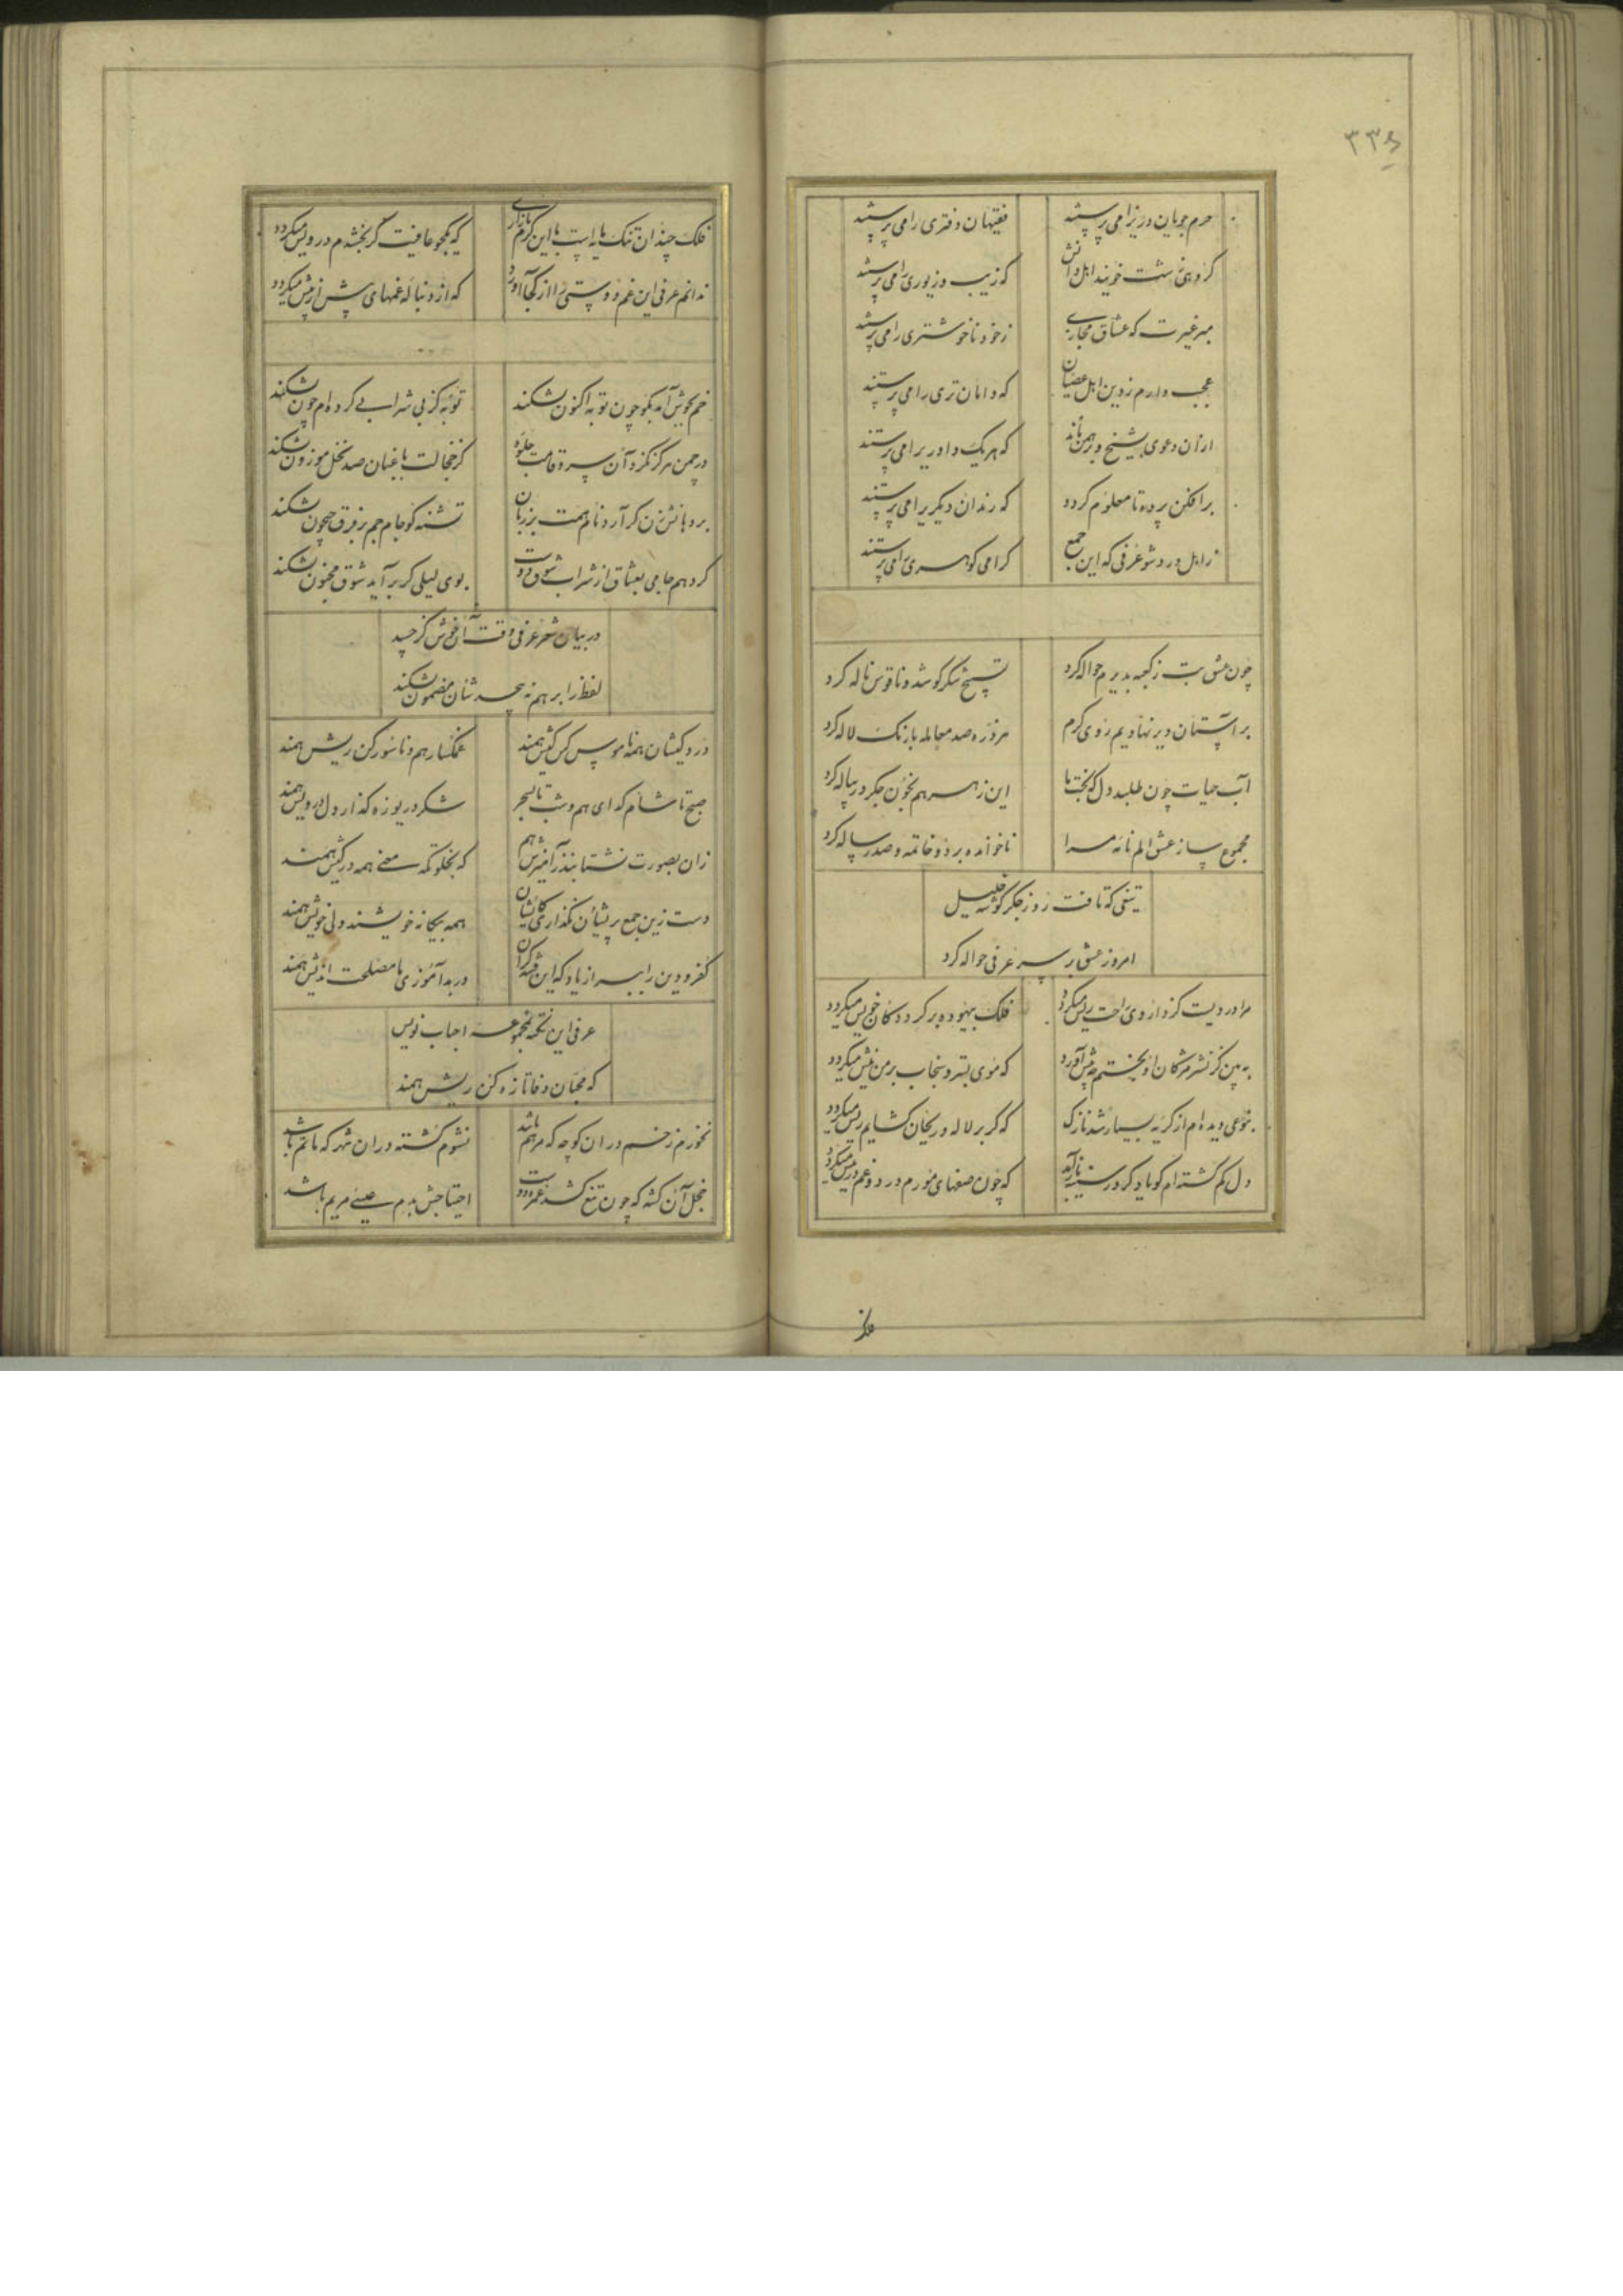 ۳۳۶
حرم جویان دریرا می پرستند
فقیهان دفتری را می پرستند
گروهی زشت خویند اهل دانش
که زیب و زیوری را می پرستند
میر غیرت که عشاق مجازی
ز خود ناخوشتری را می پرستند
عجب دارم ز دین اهل عصیان
که دامان تری را می پرستند
ازان دعوی شیخ و برهمن ماند
که هر یک داوریرا می پرستند
برافکن پرده تا معلوم کردد
که رندان دیکریرا می پرستند
ز اهل درد شو عرفی که این جمع
کرامی کوهری را می پرستند
چون عشق بت ز کعبه بدیرم حواله کرد
تسبیح شکر کو شد و ناقوس ناله کرد
بر آستان دیر نهادیم روی کرم
هر ذره صد معامله با رنک لاله کرد
آب حیات چون طلبد دل که بخت ما
این زهر هم بخون جکر در پیاله کرد
مجموع ساز عشق الم نامه مرا
ناخوانده برد و خاتمه صد رساله کرد
تیغی که تافت روز جکر کوشه خلیل
امروز عشق بر سر عرفی حواله کرد
مرا دردیست کز داروی راحت ریش میکردد
فلک بیهوده بر کرد دکان خویش میکردد
به بین کز نشتر مژکان او بختم چه پیش آورد
که موی بستر سنجاب بر من نیش میکردد
بخوی دیده ام از کریه بسیار شد نازک
که کر بر لاله و ریحان کشایم ریش میکردد
دل کم کشته ام کو یاد کر در سینه باز آید
که چون صفهای مورم درد و غم در پیش میکردد
فلک چندان تنک مایه است با این کرم بازاری
که یکجو عافیت کر بخشدم درویش میکردد
ندانم عرفی این غم دوستی را از کجا آورد
که از دنباله غمهای پیش از پیش میکردد
خم بجوش آمد بکو چون توبه اکنون نشکند
توبه کز بی شرابی کرده ام چون نشکند
در چمن هرکز نکرد آن سرو قامت جلوه
کز خجالت باغبان صد نخل موزون نشکند
بر دهانش زن کر آرد نام همت بر زبان
تشنه کو جام جم بر فرق جیحون نشکند
کر دهم جامی بعشاق از شراب شوق دوست
بوی لیلی کر برآید شوق مجنون نشکند
در بیان شعر عرفی وقت آن خوش کز حسد
لفظ را بر هم نپیچد شان مضمون نشکند
درد کیشان همه ناموس کس کیش همند
غمکسار هم و ناسور کن ریش همند
صبح تا شام کدای هم و شب تا بسحر
شکر دریوزه کذار دل درویش همند
زان بصورت نشتابند در آمیزش هم
که بخلوتکه معنی همه در کیش همند
دست زین جمع پریشان نکذاری کایشان
همه بیکانه خویشند ولی خویش همند
کفر و دین را ببر از یاد که این فتنه کران
در بد آموزی ما مصلحت اندیش همند
عرفی این نکته بمجموعه احباب نویس
که محبان وفا تازه کن ریش همند
نخورم زخم در ان کوچه که مرهم باشد
نشوم کشته در ان شهر که ماتم باشد
خجل آن کشته که چون تیغ کشد غمزه دوست
احتیاجش بدم عیسی مریم باشد
فلک